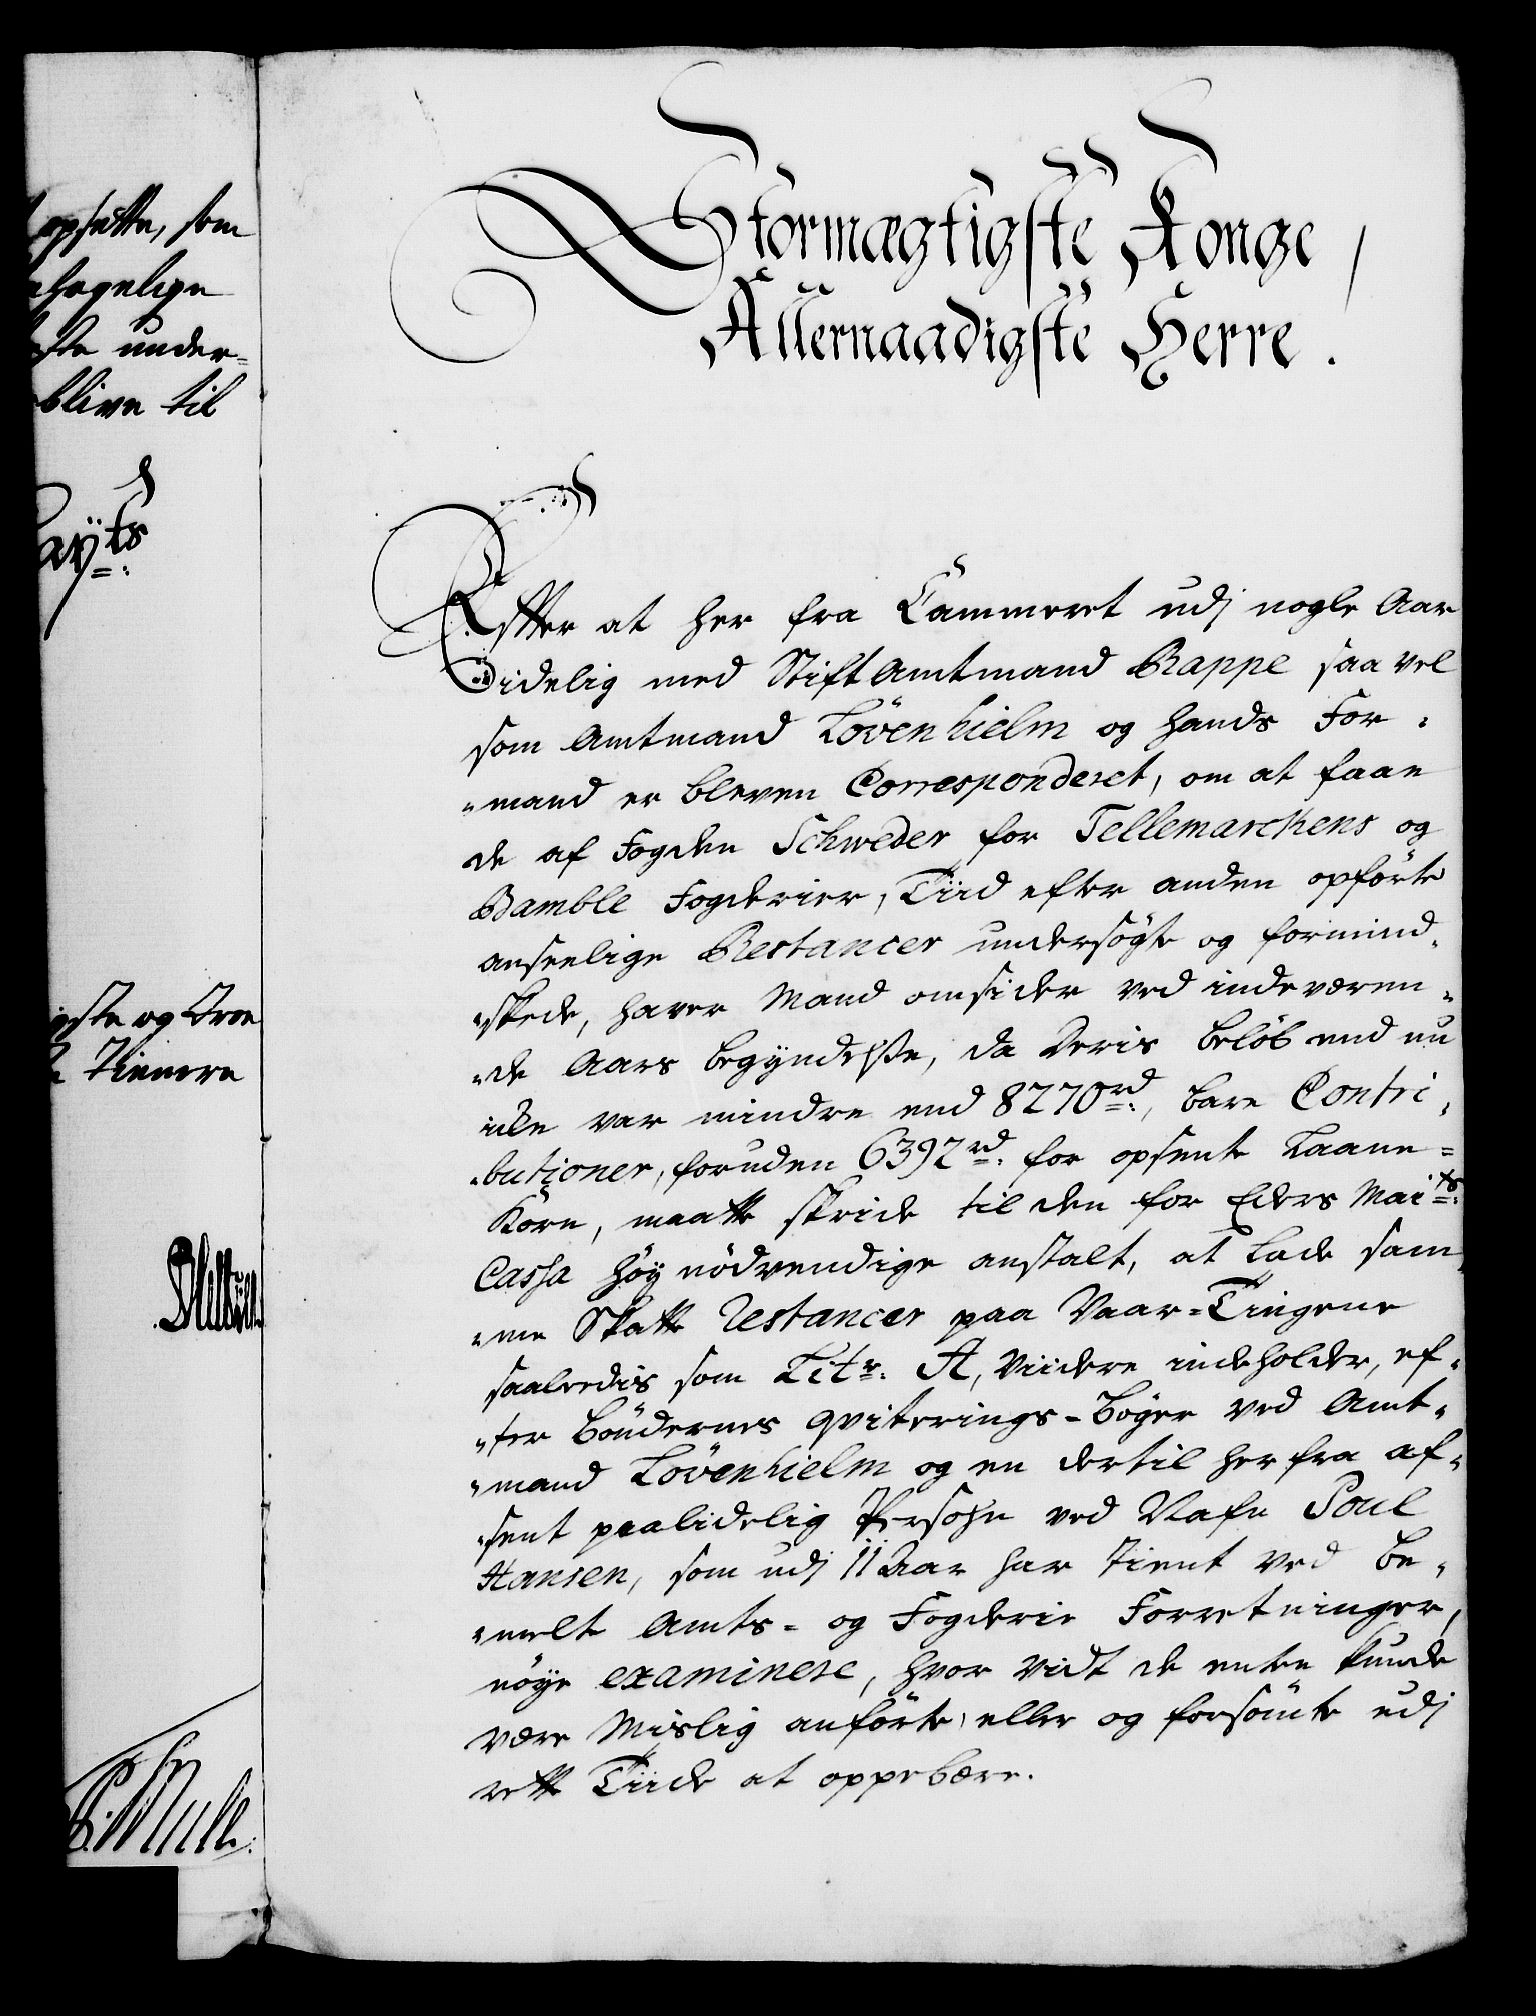 opsatte, som
under-
blive til
May.ts
-ste og Troe
Tienere
Stormægtigste Konge,
Allernaadigste Herre.
Efter at her fra Cammeret udj nogle Aar
idelig med StiftAmtmand Rappe saa vel
som Amtmand Lövenhielm og hands For-
-mand er bleven Corresponderet, om at faae
de af Fogden Schweder for Tellemarckens og
Bamble Fogderier, Tiid efter anden opförte
anseelige Restancer undersögte og formind-
-skede, haver Mand omsider ved indeværen-
-de Aars begyndelse, da deris belöb end nu
icke var mindre end 8270 rd., bare Contri-
-butioner, foruden 6392 rd. for opsente Laane-
Korn, maatte skride til den for Eders Mai.ts
Cassa höynödvendige anstalt, at lade sam-
-me Skatte Restancer paa Vaar-Tingene
saaledis som Litr. A, viidere indeholder, ef-
-ter Böndernes Qviterings-Böger ved Amt-
-mand Lövenhielm og en dertil her fra af-
-sent paalidelig Persohn ved Nafn Poul
Hansen, som udj 11 Aar har tient ved be-
-melte Amts- og Fogderie Forretninger,
nöye examinere, hvor vidt de enten kunde
være Mislig anförte, eller og forsömte udj
rette Tiide at oppebære.